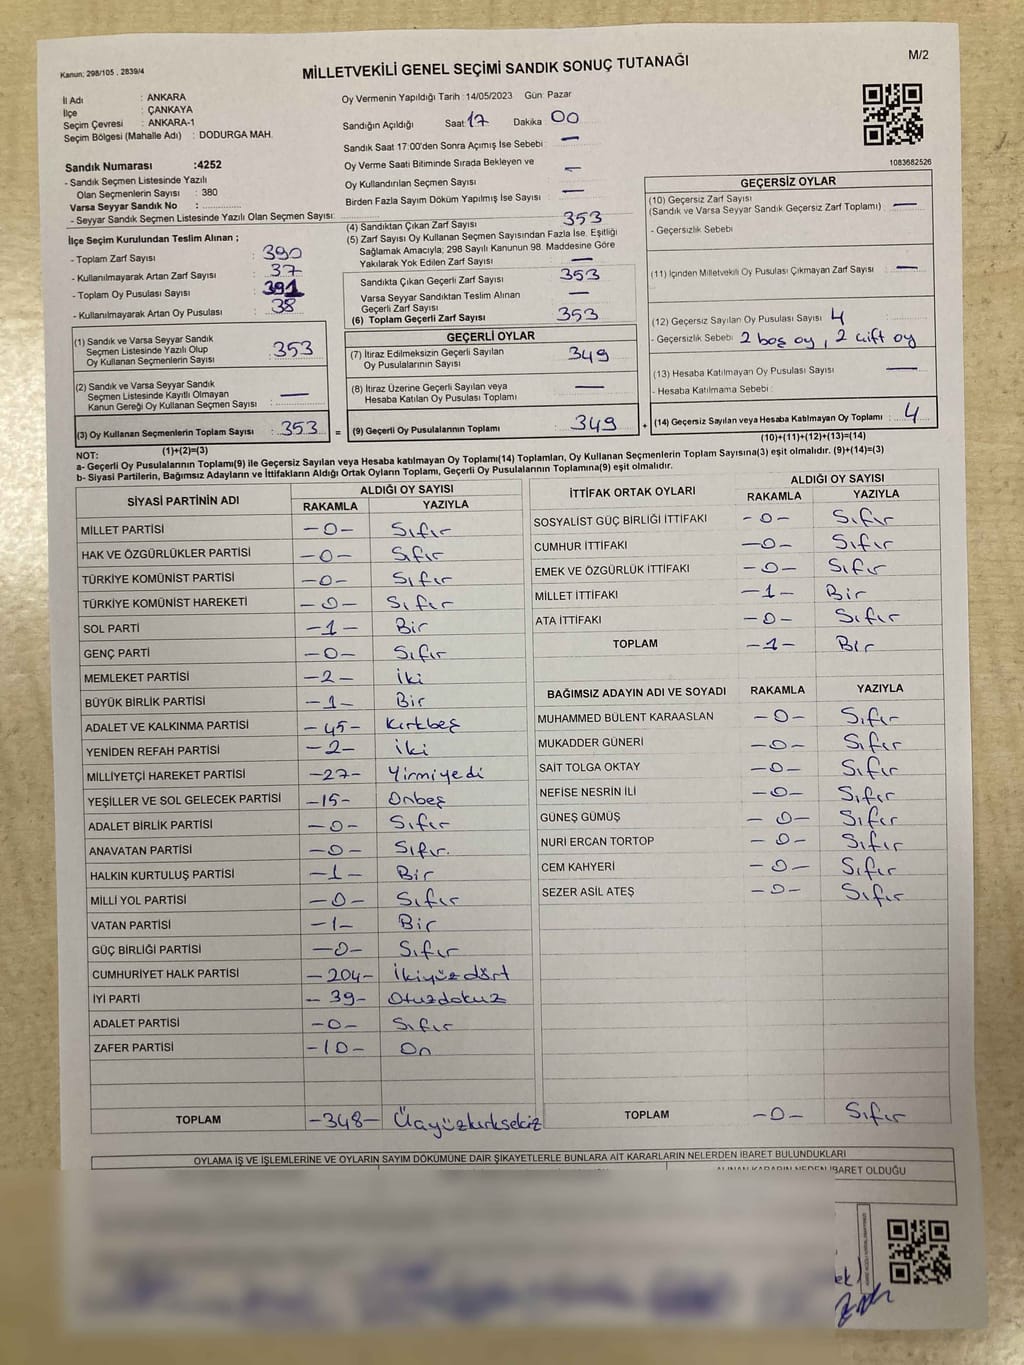 Kanun; 298/105 . 2839/4
MİLLETVEKİLİ GENEL SEÇİMİ SANDIK SONUÇ TUTANAĞI
M/2
İl Adı : ANKARA
İlçe : ÇANKAYA
Seçim Çevresi : ANKARA-1
Seçim Bölgesi (Mahalle Adı) : DODURGA MAH.
Sandık Numarası :4252
- Sandık Seçmen Listesinde Yazılı
Olan Seçmenlerin Sayısı : 380
Varsa Seyyar Sandık No :
- Seyyar Sandık Seçmen Listesinde Yazılı Olan Seçmen Sayısı:
Oy Vermenin Yapıldığı Tarih :14/05/2023 Gün: Pazar
Sandığın Açıldığı Saat 17 Dakika 00
Sandık Saat 17:00'den Sonra Açımış İse Sebebi : —
Oy Verme Saati Bitiminde Sırada Bekleyen ve
Oy Kullandırılan Seçmen Sayısı —
Birden Fazla Sayım Döküm Yapılmış İse Sayısı : —
1083682526
İlçe Seçim Kurulundan Teslim Alınan ;
- Toplam Zarf Sayısı : 390
- Kullanılmayarak Artan Zarf Sayısı : 37
- Toplam Oy Pusulası Sayısı : 391
- Kullanılmayarak Artan Oy Pusulası : 38
(1) Sandık ve Varsa Seyyar Sandık
Seçmen Listesinde Yazılı Olup
Oy Kullanan Seçmenlerin Sayısı : 353
(2) Sandık ve Varsa Seyyar Sandık
Seçmen Listesinde Kayıtlı Olmayan
Kanun Gereği Oy Kullanan Seçmen Sayısı : —
(3) Oy Kullanan Seçmenlerin Toplam Sayısı : 353
(1)+(2)=(3)
(4) Sandıktan Çıkan Zarf Sayısı 353
(5) Zarf Sayısı Oy Kullanan Seçmen Sayısından Fazla İse, Eşitliği
Sağlamak Amacıyla; 298 Sayılı Kanunun 98. Maddesine Göre
Yakılarak Yok Edilen Zarf Sayısı : —
Sandıkta Çıkan Geçerli Zarf Sayısı : 353
Varsa Seyyar Sandıktan Teslim Alınan
Geçerli Zarf Sayısı : —
(6) Toplam Geçerli Zarf Sayısı : 353
GEÇERLİ OYLAR
(7) İtiraz Edilmeksizin Geçerli Sayılan
Oy Pusulalarının Sayısı : 349
(8) İtiraz Üzerine Geçerli Sayılan veya
Hesaba Katılan Oy Pusulası Toplamı : —
= (9) Geçerli Oy Pusulalarının Toplamı : 349
GEÇERSİZ OYLAR
(10) Geçersiz Zarf Sayısı
(Sandık ve Varsa Seyyar Sandık Geçersiz Zarf Toplamı) : —
- Geçersizlik Sebebi :
(11) İçinden Milletvekili Oy Pusulası Çıkmayan Zarf Sayısı : —
(12) Geçersiz Sayılan Oy Pusulası Sayısı : 4
- Geçersizlik Sebebi : 2 boş oy, 2 çift oy
(13) Hesaba Katılmayan Oy Pusulası Sayısı : —
- Hesaba Katılmama Sebebi :
+ (14) Geçersiz Sayılan veya Hesaba Katılmayan Oy Toplamı : 4
(10)+(11)+(12)+(13)=(14)
NOT:
a- Geçerli Oy Pusulalarının Toplamı(9) ile Geçersiz Sayılan veya Hesaba katılmayan Oy Toplamı(14) Toplamları, Oy Kullanan Seçmenlerin Toplam Sayısına(3) eşit olmalıdır. (9)+(14)=(3)
b- Siyasi Partilerin, Bağımsız Adayların ve İttifakların Aldığı Ortak Oyların Toplamı, Geçerli Oy Pusulalarının Toplamına(9) eşit olmalıdır.
SİYASİ PARTİNİN ADI ALDIĞI OY SAYISI
RAKAMLA YAZIYLA
MİLLET PARTİSİ -0- Sıfır
HAK VE ÖZGÜRLÜKLER PARTİSİ -0- Sıfır
TÜRKİYE KOMÜNİST PARTİSİ -0- Sıfır
TÜRKİYE KOMÜNİST HAREKETİ -0- Sıfır
SOL PARTİ -1- Bir
GENÇ PARTİ -0- Sıfır
MEMLEKET PARTİSİ -2- İki
BÜYÜK BİRLİK PARTİSİ -1- Bir
ADALET VE KALKINMA PARTİSİ -45- Kırkbeş
YENİDEN REFAH PARTİSİ -2- İki
MİLLİYETÇİ HAREKET PARTİSİ -27- Yirmiyedi
YEŞİLLER VE SOL GELECEK PARTİSİ -15- Onbeş
ADALET BİRLİK PARTİSİ -0- Sıfır
ANAVATAN PARTİSİ -0- Sıfır.
HALKIN KURTULUŞ PARTİSİ -1- Bir
MİLLİ YOL PARTİSİ -0- Sıfır
VATAN PARTİSİ -1- Bir
GÜÇ BİRLİĞİ PARTİSİ -0- Sıfır
CUMHURİYET HALK PARTİSİ -204- İkiyüzdört
İYİ PARTİ -39- Otuzdokuz
ADALET PARTİSİ -0- Sıfır
ZAFER PARTİSİ -10- On
TOPLAM -348- Üçyüzkırksekiz
İTTİFAK ORTAK OYLARI ALDIĞI OY SAYISI
RAKAMLA YAZIYLA
SOSYALİST GÜÇ BİRLİĞİ İTTİFAKI -0- Sıfır
CUMHUR İTTİFAKI -0- Sıfır
EMEK VE ÖZGÜRLÜK İTTİFAKI -0- Sıfır
MİLLET İTTİFAKI -1- Bir
ATA İTTİFAKI -0- Sıfır
TOPLAM -1- Bir
BAĞIMSIZ ADAYIN ADI VE SOYADI RAKAMLA YAZIYLA
MUHAMMED BÜLENT KARAASLAN -0- Sıfır
MUKADDER GÜNERİ -0- Sıfır
SAİT TOLGA OKTAY -0- Sıfır
NEFİSE NESRİN İLİ -0- Sıfır
GÜNEŞ GÜMÜŞ -0- Sıfır
NURİ ERCAN TORTOP -0- Sıfır
CEM KAHYERİ -0- Sıfır
SEZER ASİL ATEŞ -0- Sıfır
TOPLAM -0- Sıfır
OYLAMA İŞ VE İŞLEMLERİNE VE OYLARIN SAYIM DÖKÜMÜNE DAİR ŞİKAYETLERLE BUNLARA AİT KARARLARIN NELERDEN İBARET BULUNDUKLARI
ALINAN KARARIN NEDEN İBARET OLDUĞU